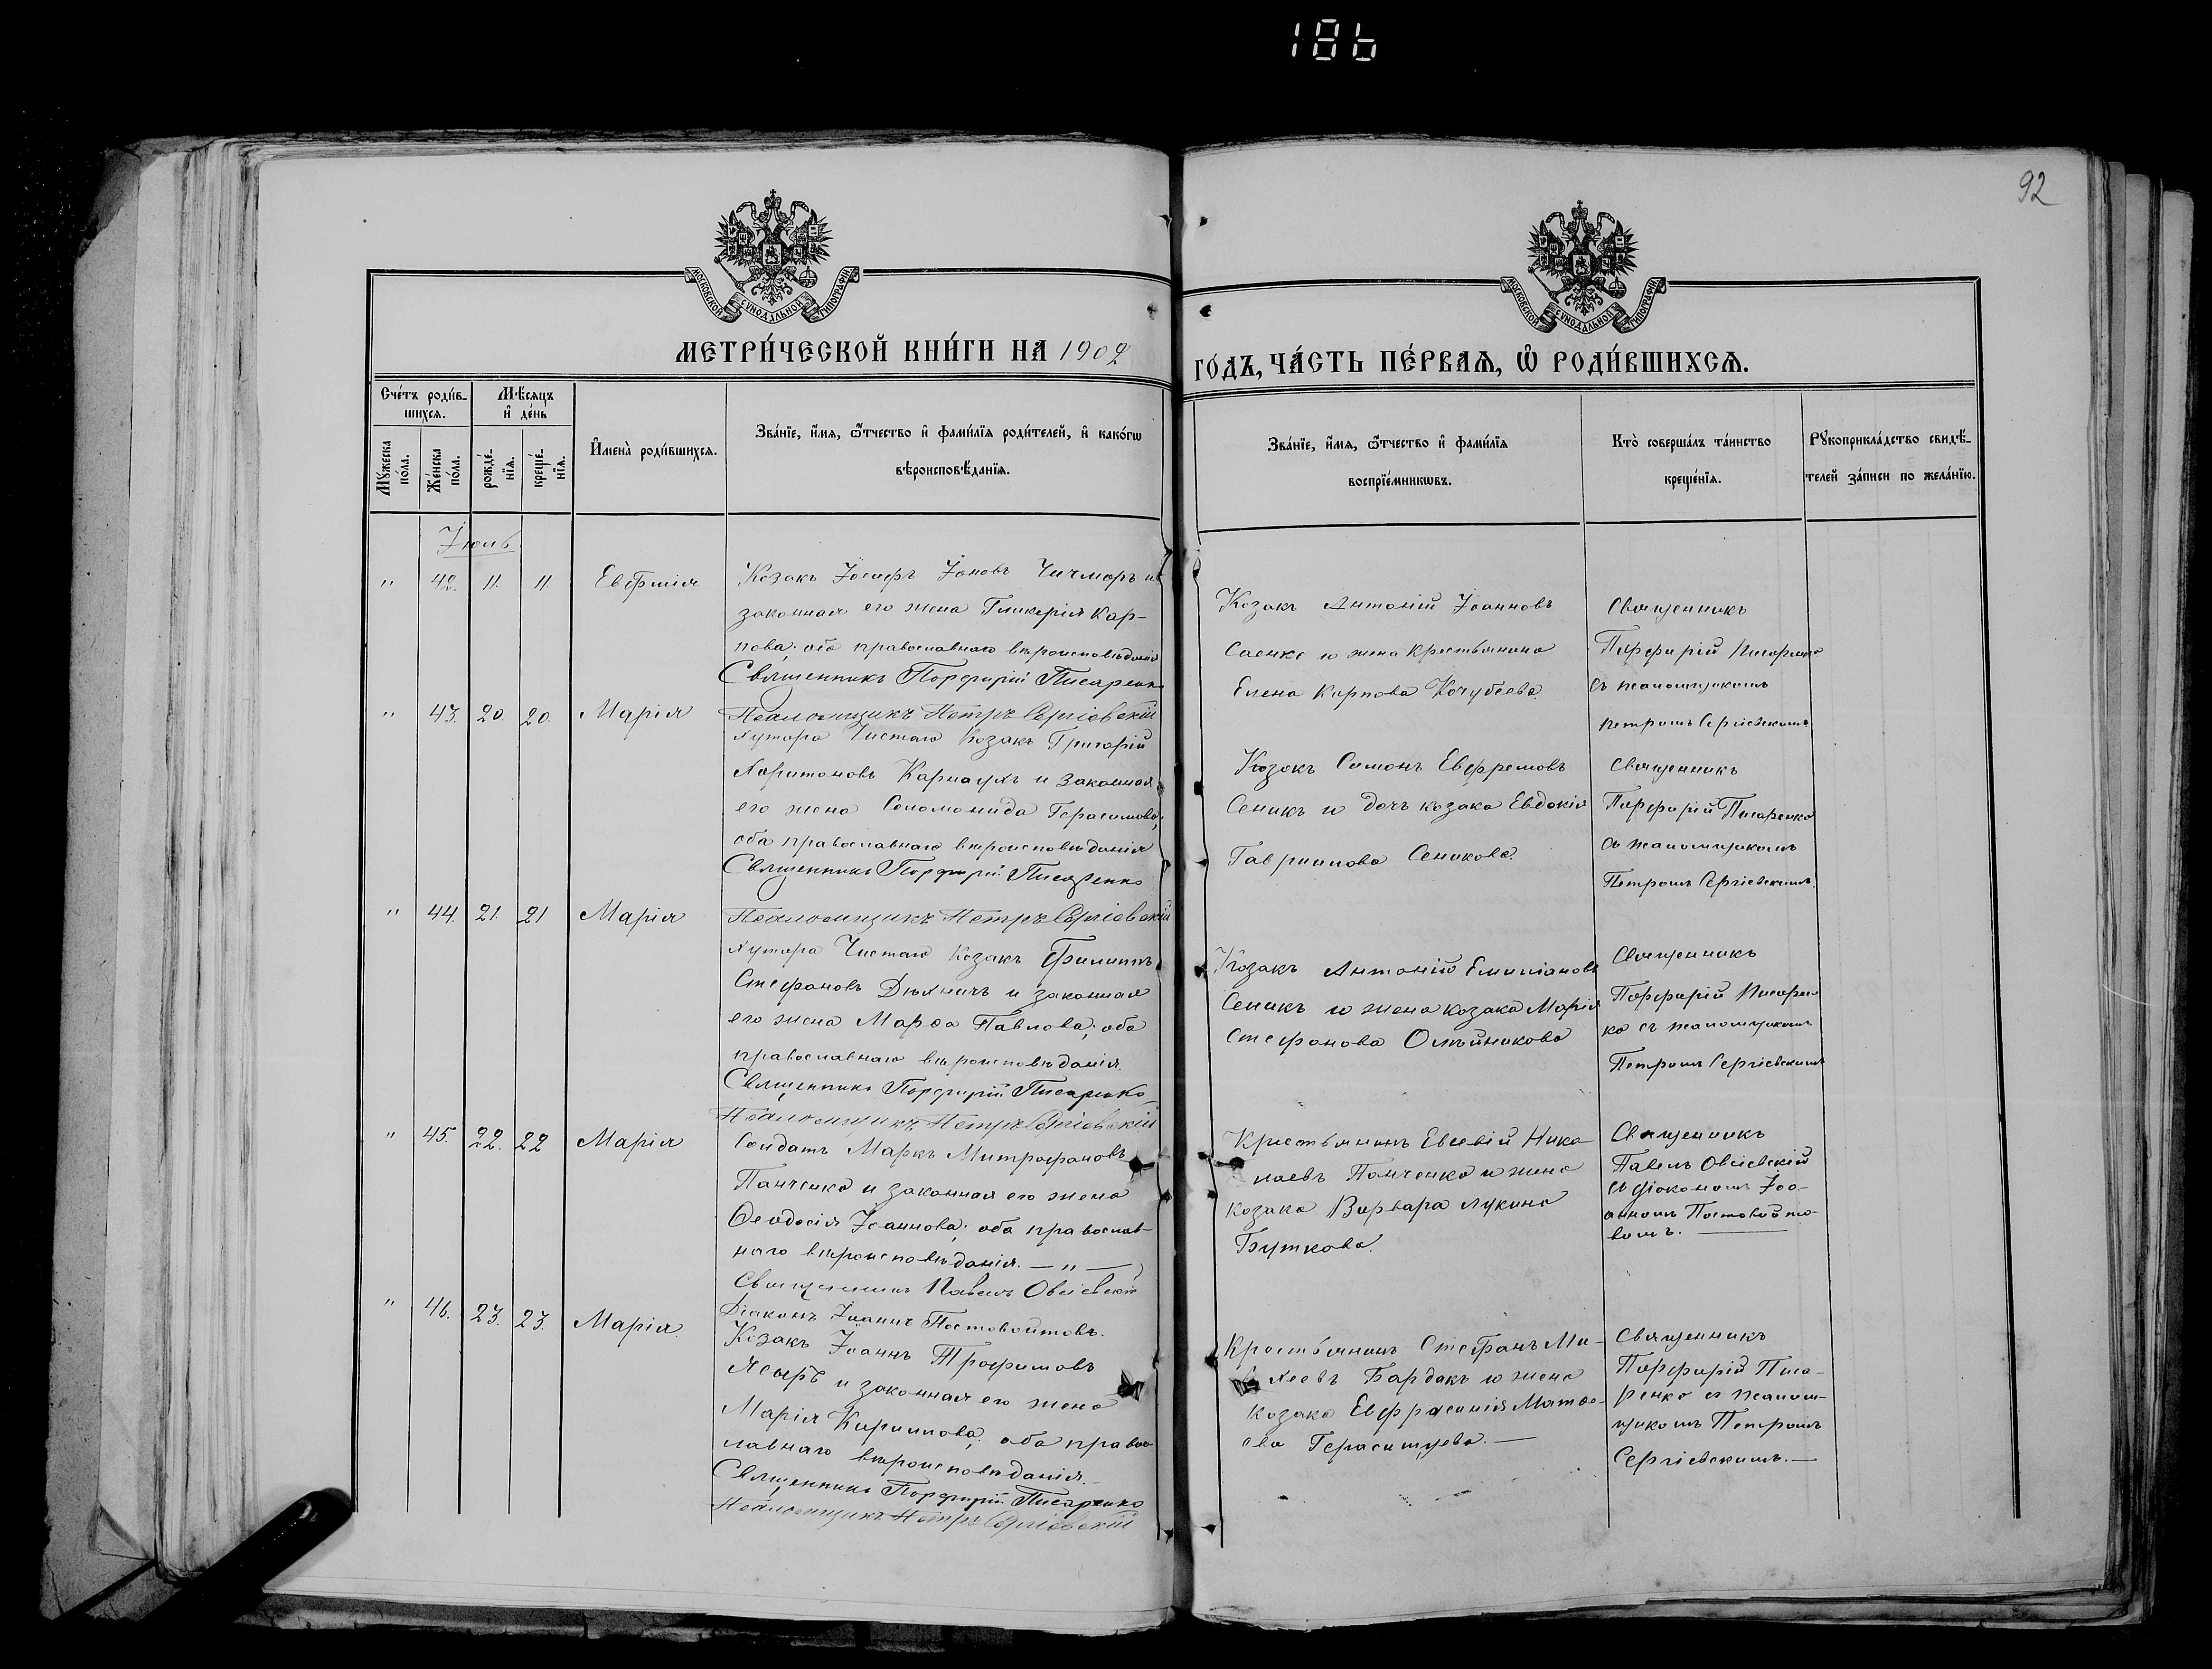 186
92
МОСКОВСКОЙ СУНОДАЛЬНОЙ ТИПОГРАФІИ
МОСКОВСКОЙ СУНОДАЛЬНОЙ ТИПОГРАФІИ
МЕТРИ́ЧЕСКОЙ КНИ́ГИ НА 1902
ГО́ДЪ, ЧА́СТЬ ПЕ́РВАѦ, Ѡ РОДИ́ВШИХСѦ.
Сче́тъ роди́в-
шихсѧ.
Мꙋ́жеска по́ла.
Же́нска по́ла.
Мѣ́сѧцъ
и де́нь
рожде́-
нїѧ.
креще́-
нїѧ.
И҆мена̀ роди́вшихсѧ.
Зва́нїе, и҆́мѧ, ѻ҆́тчество и҆ фами́лїѧ роди́телей, и҆ како́гѡ
вѣроисповѣ́данїѧ.
Зва́нїе, и҆́мѧ, ѻ҆́тчество и҆ фами́лїѧ
воспрїе́мникѡвъ.
Кто̀ соверша́лъ та́инство
креще́нїѧ.
Рꙋкоприкла́дство свидѣ́-
телей за́писи по жела́нїю.
Іюль
" 42. 11. 11. Евфимія
Козакъ Іосифъ Іоновъ Чичморъ и
законная его жена Гликерія Кар-
пова; оба православнаго вѣроисповѣданія
Священникъ Порфирій Писаренко
Псаломщикъ Петръ Сергіевскій
Козакъ Антоній Іоанновъ
Саенко и жена крестьянина
Елена Карпова Кочубеева
Священникъ
Порфирій Писаренко
съ псаломщикомъ
Петромъ Сергіевскимъ
" 43. 20. 20. Марія
Хутора Чистаго Козакъ Григорій
Харитоновъ Карнаухъ и законная
его жена Соломонида Герасимова;
оба православнаго вѣроисповѣданія
Священникъ Порфирій Писаренко
Псаломщикъ Петръ Сергіевскій
Козакъ Симонъ Евфремовъ
Сеникъ и дочь козака Евдокія
Гавриилова Сеникова.
Священникъ
Порфирій Писаренко
съ псаломщикомъ
Петромъ Сергіевскимъ.
" 44. 21. 21 Марія
Хутора Чистаго Козакъ Филиппъ
Стефановъ Дяхничъ и законная
его жена Марѳа Павлова; оба
православнаго вѣроисповѣданія.
Священникъ Порфирій Писаренко
Псаломщикъ Петръ Сергіевскій
Козакъ Антоній Емиліановъ
Сеникъ и жена козака Марія
Стефанова Олѣйникова
Священникъ
Порфирій Писарен-
ко съ псаломщикомъ
Петромъ Сергіевскимъ
" 45. 22. 22 Марія
Солдатъ Маркъ Митрофановъ
Панченко и законная его жена
Ѳеодосія Іоаннова; оба православ-
наго вѣроисповѣданія. — " —
Священникъ Павелъ Овсіевскій
Діаконъ Іоаннъ Постовойтовъ.
Крестьянинъ Евсевій Нико-
лаевъ Панченко и жена
козака Варвара Лукина
Буткова.
Священникъ
Павелъ Овсіевскій
съ діакономъ Іоа-
анномъ Постовойто-
вомъ. —
" 46. 23. 23. Марія.
Козакъ Іоаннъ Трофимовъ
Ясыръ и законная его жена
Марія Кириллова; оба право-
славнаго вѣроисповѣданія.
Священникъ Порфирій Писаренко
Псаломщикъ Петръ Сергіевскій
Крестьянинъ Стефанъ Ми-
хеевъ Бардакъ и жена
козака Евфросинія Матѳе-
ева Герасимцева. —
Священникъ
Порфирій Писа-
ренко съ псалом-
щикомъ Петромъ
Сергіевскимъ. —